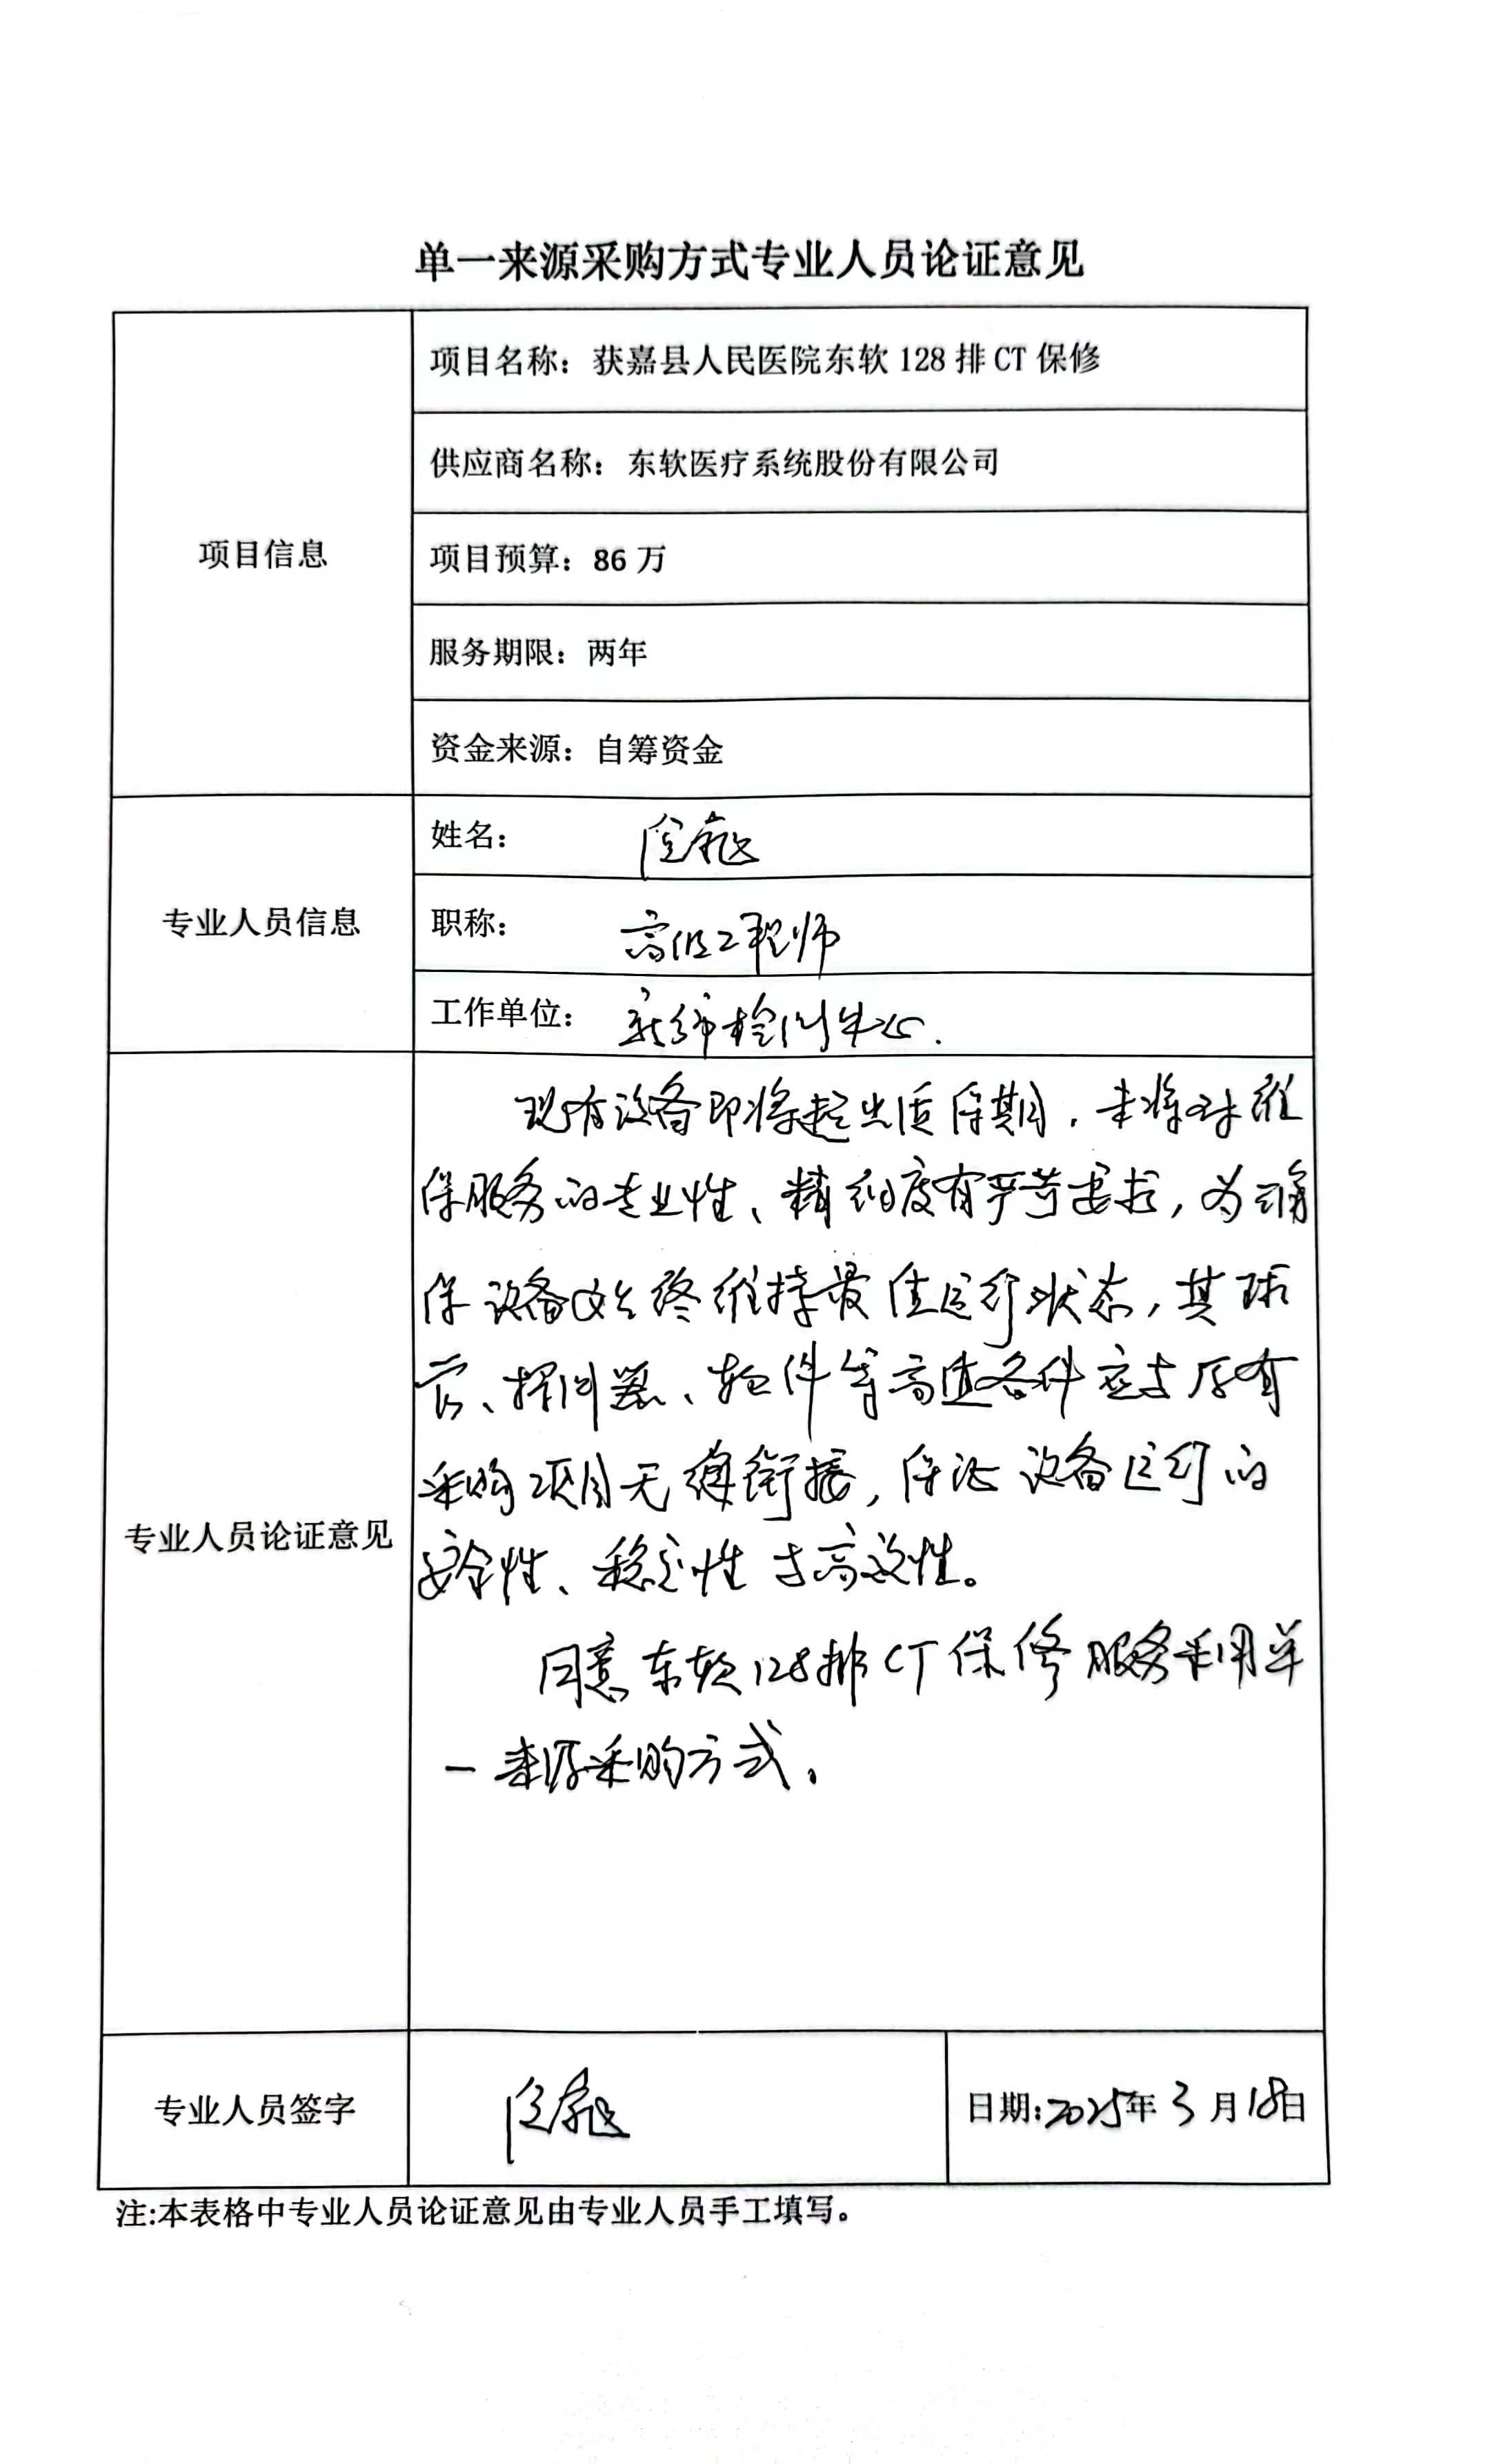 单一来源采购方式专业人员论证意见
项目信息
项目名称：获嘉县人民医院东软 128 排 CT 保修
供应商名称：东软医疗系统股份有限公司
项目预算：86 万
服务期限：两年
资金来源：自筹资金
专业人员信息
姓名：
职称：高级工程师
工作单位：检测中心.
专业人员论证意见
现有设备即将超出质保期，未来对维
保服务的专业性、精细度有严苛要求，为确
保设备始终维持最佳运行状态，其球
管、探测器、软件等高值备件应与原有
采购项目无缝衔接，保证设备运行的
安全性、稳定性与高效性。
同意东软128排CT保修服务采用单
一来源采购方式。
专业人员签字
日期:2025年3月18日
注:本表格中专业人员论证意见由专业人员手工填写。